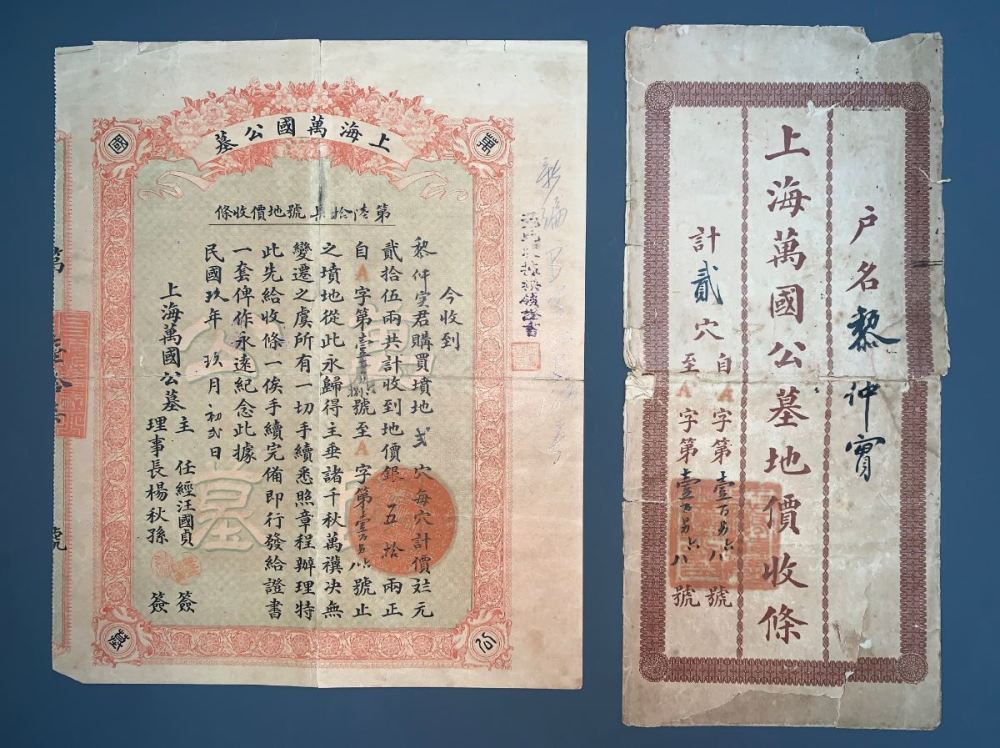 上海萬國公墓
萬
國
公
墓
號地價收條
今收到
君購買墳地 弍 穴每穴計價
貳拾伍兩共計收到地價銀 五拾 兩正
自A字第 號至A字第 號止
之墳地從此永歸得主垂諸千秋萬禩決無
變遷之虞所有一切手續悉照章程辦理特
此先給收條一俟手續完備即行發給證書
一套俾作永遠紀念此據
民國玖年 玖月 初 日
上海萬國公墓
主任經汪國貞 簽
理事長楊秋孫 簽
號
户名黎仲實
上海萬國公墓地價收條
計貳穴
自A字第壹 號
至A字第壹 號